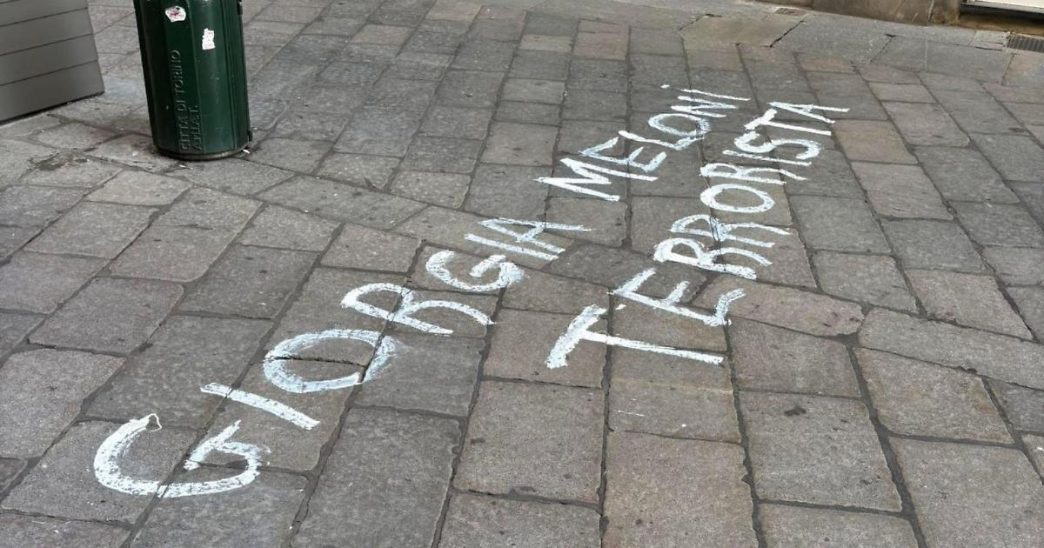 GIORGIA MELONI
TERRORISTA
CITTÀ DI TORINO